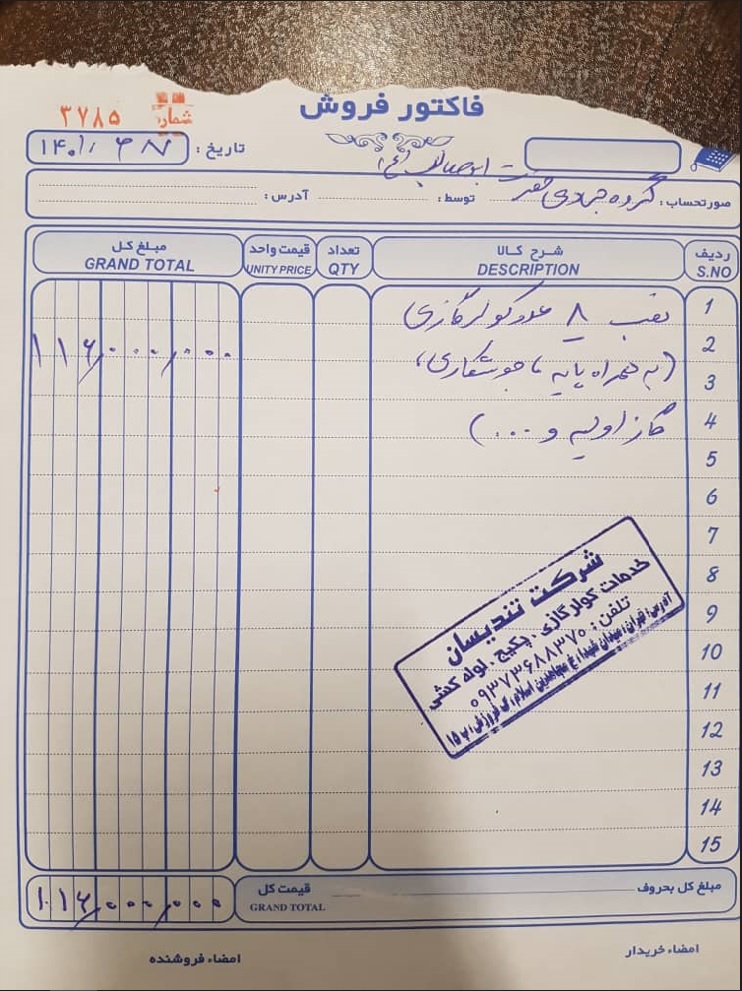 فاکتور فروش
شماره ۳۷۸۵
تاریخ :
ابوصالح (عج)
صورتحساب : گروه جهادی توسط : آدرس :
ردیف شرح کالا تعداد قیمت واحد مبلغ کل
S.NO DESCRIPTION QTY UNITY PRICE GRAND TOTAL
1 نصب ۸ عدد کولر گازی
2 ۱۱۶/۰۰۰/۰۰۰
3 (به همراه پایه ، جوشکاری ،
4 گاز اولیه و ...)
5
6
7
8
9
10
11
12
13
14
15
شرکت تندیسان
خدمات کولر گازی . پکیج . لوله کشی
تلفن : ۰۹۳۷۳۶۸۸۳۷۰
آدرس: تهران، میدان شهدا، خ مجاهدین اسلام، پ ۱۵
مبلغ کل بحروف قیمت کل ۱۱۶/۰۰۰/۰۰۰
GRAND TOTAL
امضاء خریدار امضاء فروشنده